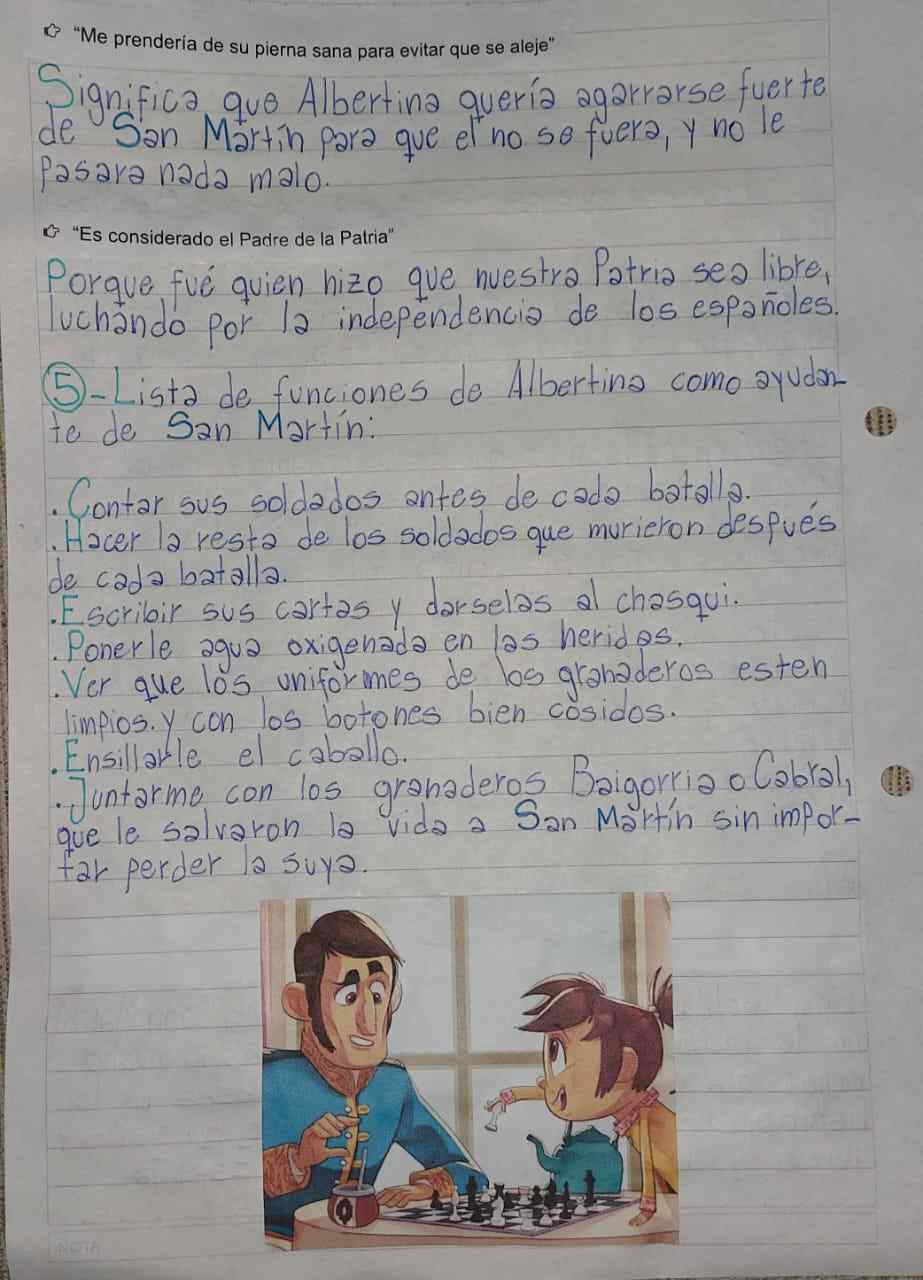 “Me prendería de su pierna sana para evitar que se aleje”
Significa que Albertina quería agarrarse fuerte
de San Martín para que el no se fuera, y no le
pasara nada malo.
“Es considerado el Padre de la Patria”
Porque fué quien hizo que nuestra Patria sea libre,
luchando por la independencia de los españoles.
5-Lista de funciones de Albertina como ayudan-
te de San Martín:
.Contar sus soldados antes de cada batalla.
.Hacer la resta de los soldados que murieron después
de cada batalla.
.Escribir sus cartas y darselas al chasqui.
.Ponerle agua oxigenada en las heridas.
.Ver que los uniformes de los granaderos esten
limpios. y con los botones bien cosidos.
.Ensillarle el caballo.
.Juntarme con los granaderos Baigorria o Cabral,
que le salvaron la vida a San Martín sin impor-
tar perder la suya.
NOTA